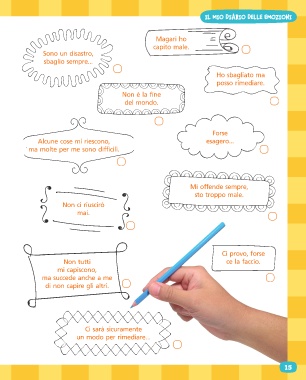 IL MIO DIARIO DELLE EMOZIONI
Magari ho
capito male.
Sono un disastro,
sbaglio sempre...
Ho sbagliato ma
posso rimediare.
Non è la fine
del mondo.
Forse
esagero...
Alcune cose mi riescono,
ma molte per me sono difficili.
Mi offende sempre,
sto troppo male.
Non ci riuscirò
mai.
Ci provo, forse
ce la faccio.
Non tutti
mi capiscono,
ma succede anche a me
di non capire gli altri.
Ci sarà sicuramente
un modo per rimediare...
15